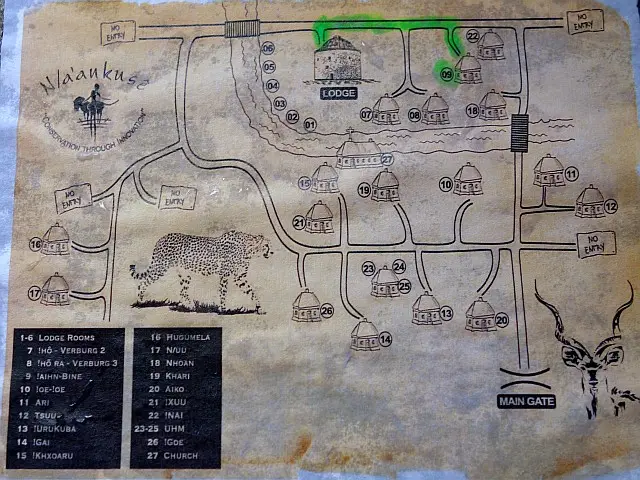 NO
ENTRY
NO
ENTRY
22
06
05
04
03
02
01
09
LODGE
07
08
18
N/a'ankusê
"CONSERVATION THROUGH INNOVATION"
27
15
19
10
11
12
NO
ENTRY
NO
ENTRY
21
16
NO
ENTRY
23
24
25
17
26
13
20
14
MAIN GATE
1-6 LODGE ROOMS
7 !HÕ - VERBURG 2
8 !HÕ RA - VERBURG 3
9 !AIHN-BINE
10 !OE-!OE
11 ARI
12 TSUU
13 !URUKUBA
14 !GAI
15 !KHXOARU
16 HUGUMELA
17 N/UU
18 NHOAN
19 KHARI
20 AIKO
21 !XUU
22 !NAI
23-25 UHM
26 !GOE
27 CHURCH